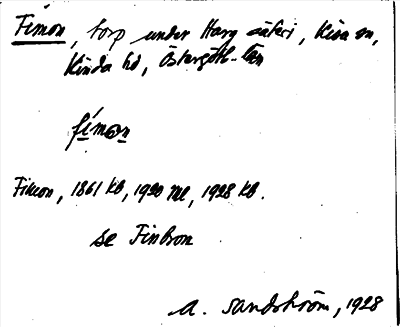 Fimon, torp under Harg säteri, Kisa sn,
Kinda hd, Östergötl. län
fímon
Fimon, 1861 kb, 1920 ml, 1928 kb.
se Finbron
A. Sandström, 1928